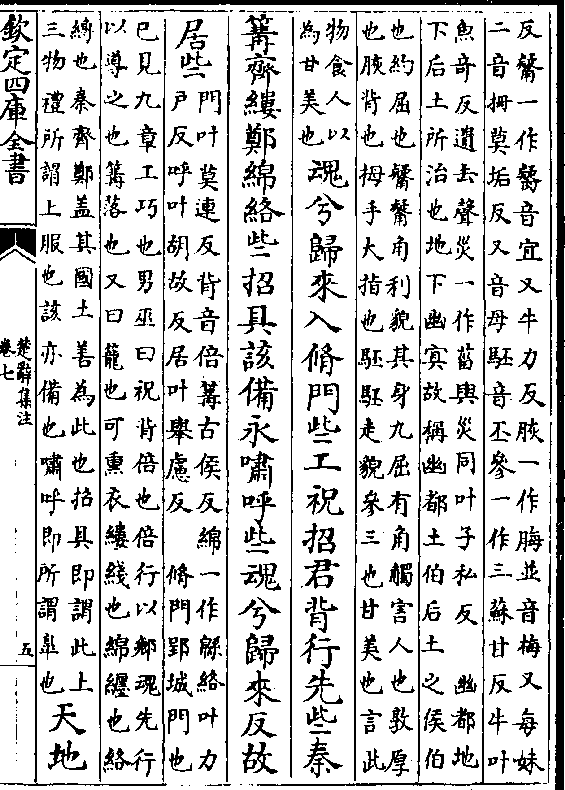 反觺一作䰯音宜又牛力反脄一作脢並音梅又每妹
二音拇莫垢反又音母駓音丕參一作三蘇甘反牛叶
魚奇反遺去聲災一作菑與災同叶子私反　幽都地
下后土所治也地下幽冥故稱幽都土伯后土之侯伯
也約屈也觺觺角利貌其身九屈有角觸害人也敦厚
也脄背也拇手大指也駓駓走貌參三也甘美也言此
物食人以
為甘美也
魂兮歸來入脩門些工祝招君背行先些秦
篝齊縷鄭綿絡些招具該備永嘯呼些魂兮歸來反故
居些
門叶莫連反背音倍篝古侯反綿一作緜絡叶力
戸反呼叶胡故反居叶舉慮反　脩門郢城門也
已見九章工巧也男巫曰祝背倍也倍行以鄉魂先行
以導之也篝落也又曰籠也可熏衣縷綫也綿纏也絡
縛也秦齊鄭盖其國土善為此也招具即謂此上
三物禮所謂上服也該亦備也嘯呼即所謂臯也
天地
欽定四庫全書
楚辭集注
卷七
五